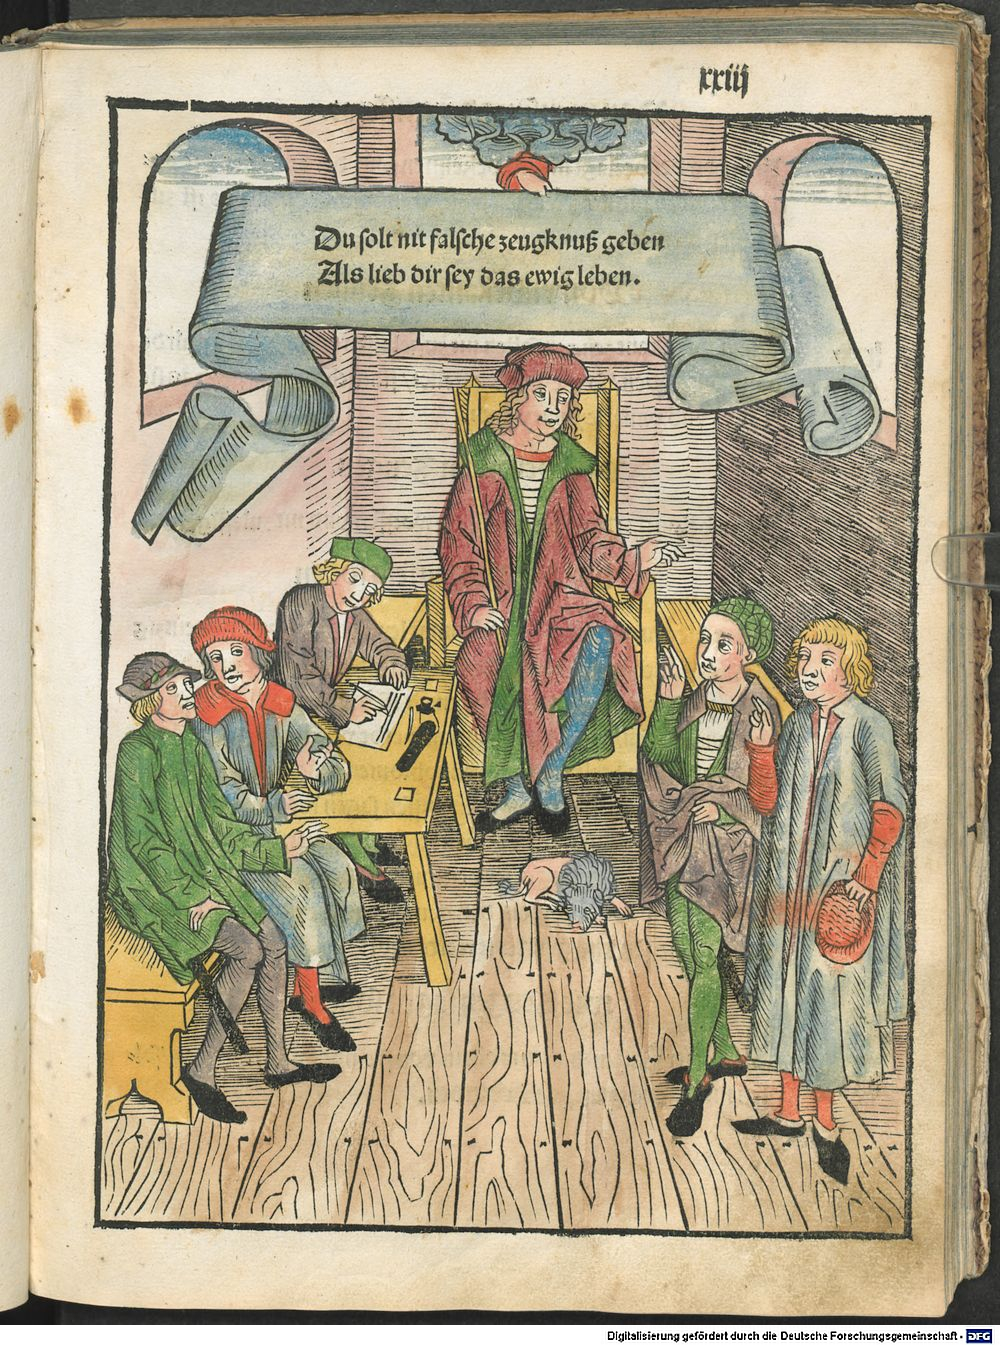 xxiij
Du solt nit falsche zeugknuß geben
Als lieb dir sey das ewig leben.
Digitalisierung gefördert durch die Deutsche Forschungsgemeinschaft - DFG